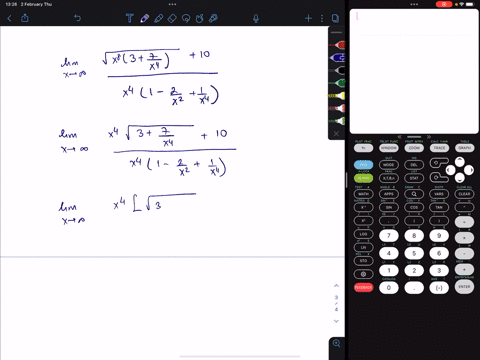 13:28 2 February Thu
lim x→∞ (√(x⁸(3 + 7/x⁴)) + 10) / (x⁴(1 - 2/x² + 1/x⁴))
lim x→∞ (x⁴ √(3 + 7/x⁴) + 10) / (x⁴(1 - 2/x² + 1/x⁴))
lim x→∞ x⁴ [√3
WINDOW ZOOM TRACE GRAPH
MODE DEL
ALPHA X,T,θ,n STAT
MATH APPS PRGM VARS CLEAR
SIN COS TAN
7 8 9
LOG 4 5 6
LN 1 2 3
STO
0 . (-) ENTER